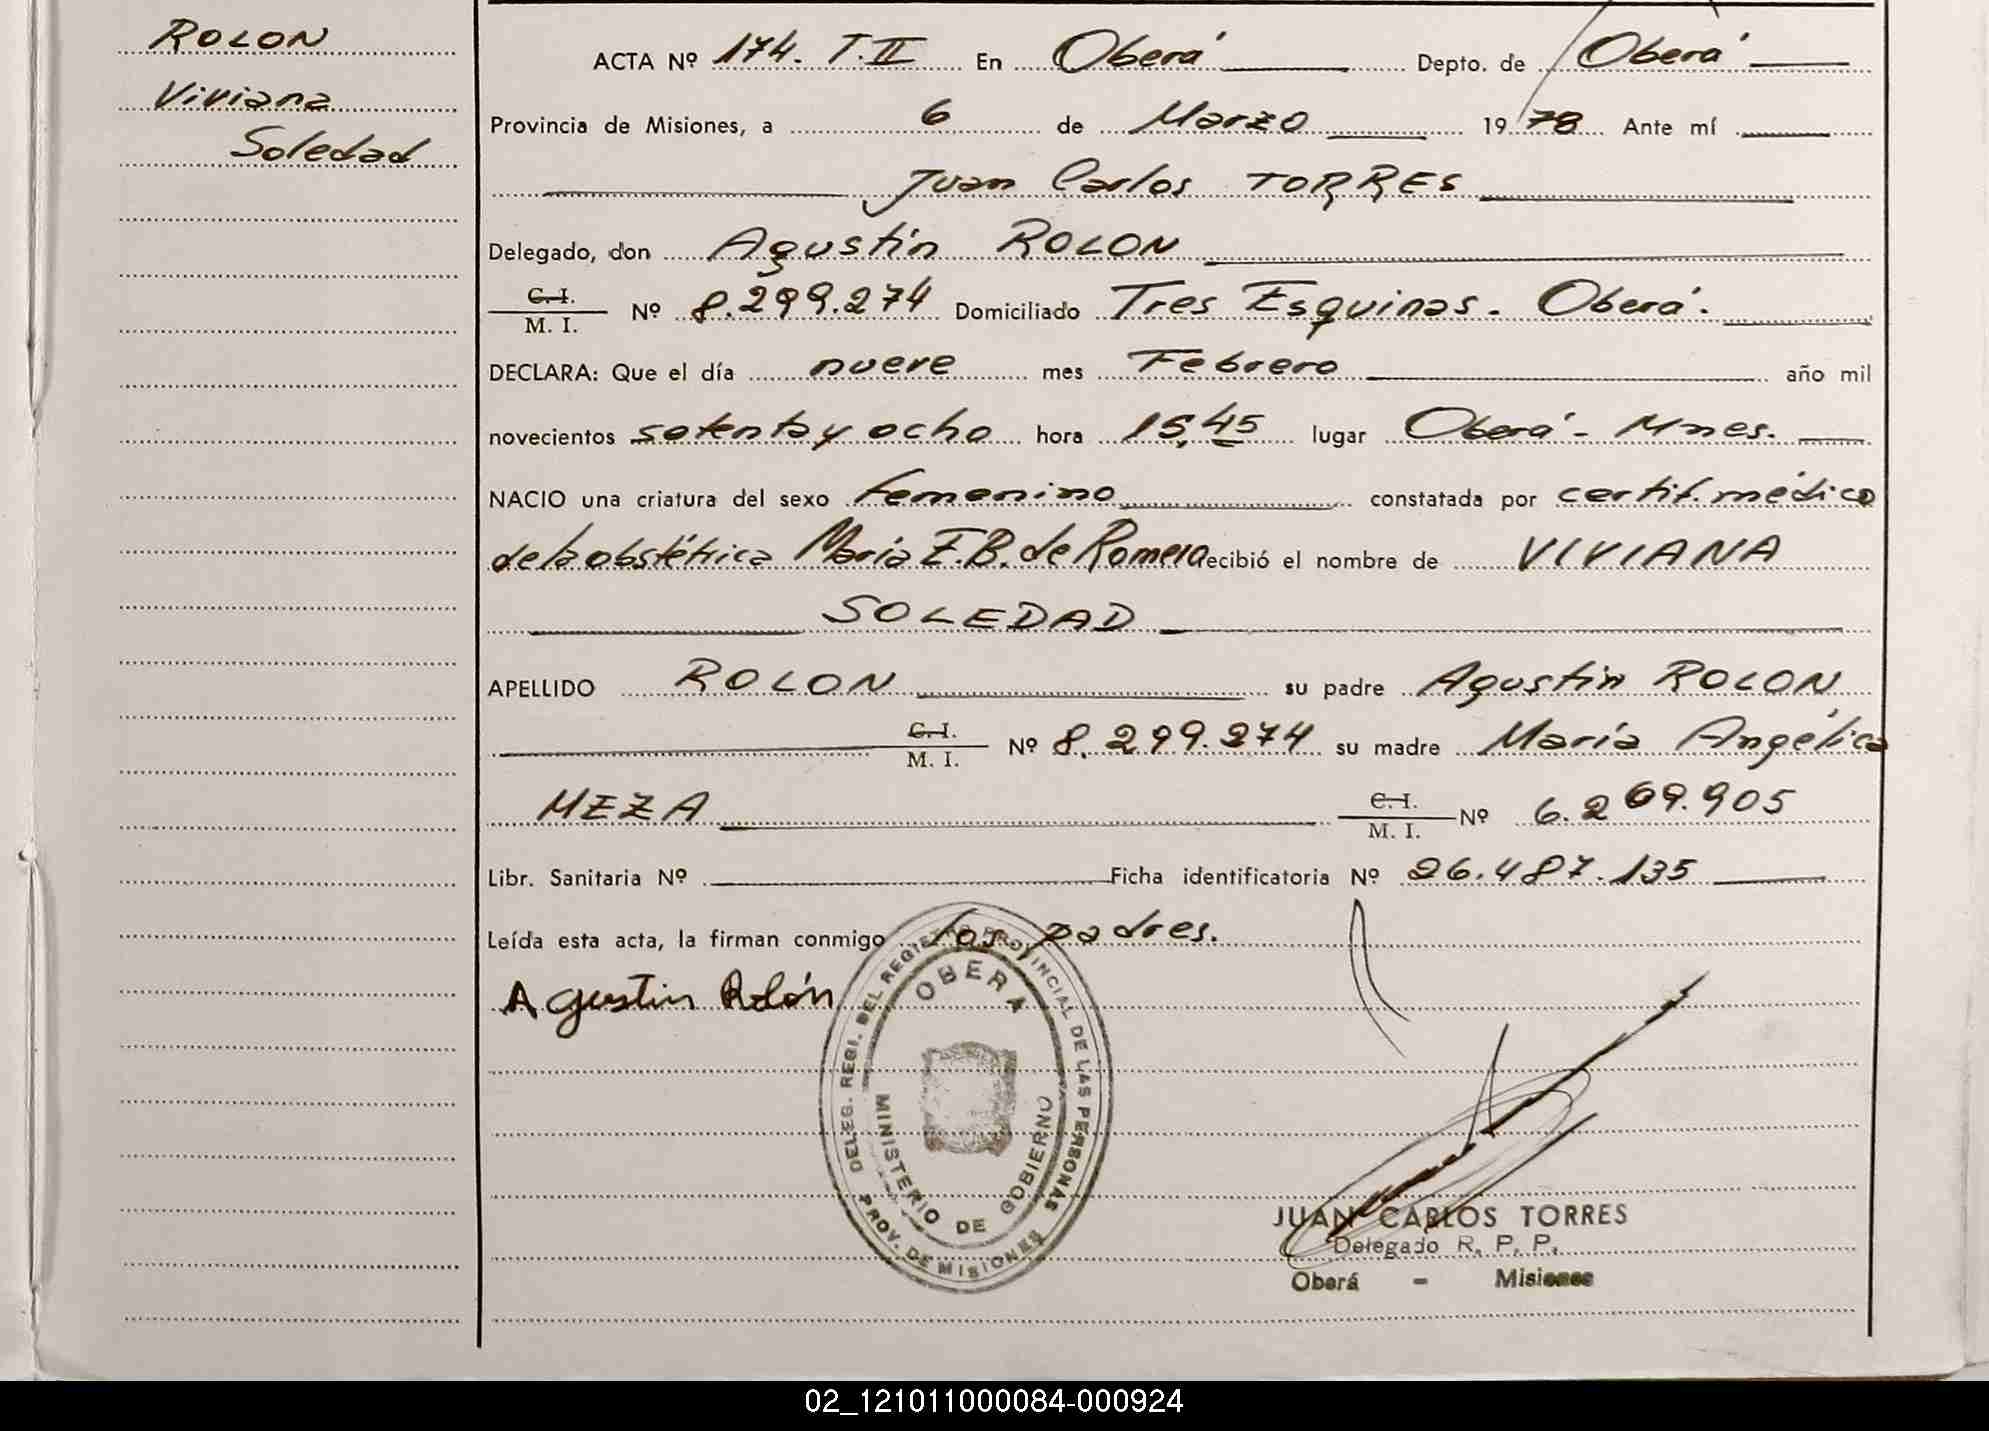 ROLON
Viviana
Soledad
ACTA Nº 174. T. II En Oberá Depto. de Oberá
Provincia de Misiones, a 6 de Marzo 1978 Ante mí
Juan Carlos TORRES
Delegado, don Agustín ROLON
C. I. / M. I. Nº 8.299.274 Domiciliado Tres Esquinas. Oberá.
DECLARA: Que el día nueve mes Febrero año mil
novecientos setenta y ocho hora 15,45 lugar Oberá - Mnes.
NACIO una criatura del sexo femenino constatada por certif. médico
de la obstétrica María E. B. de Romero recibió el nombre de VIVIANA
SOLEDAD
APELLIDO ROLON su padre Agustín ROLON
C. I. / M. I. Nº 8.299.274 su madre María Angélica
MEZA C. I. / M. I. Nº 6.269.905
Libr. Sanitaria Nº Ficha identificatoria Nº 26.487.135
Leída esta acta, la firman conmigo los padres.
Agustin Rolón
DELEG. REGI. DEL REGISTRO PROVINCIAL DE LAS PERSONAS
OBERA
MINISTERIO DE GOBIERNO
PROV. DE MISIONES
JUAN CARLOS TORRES
Delegado R. P. P.
Oberá - Misiones
02_121011000084-000924